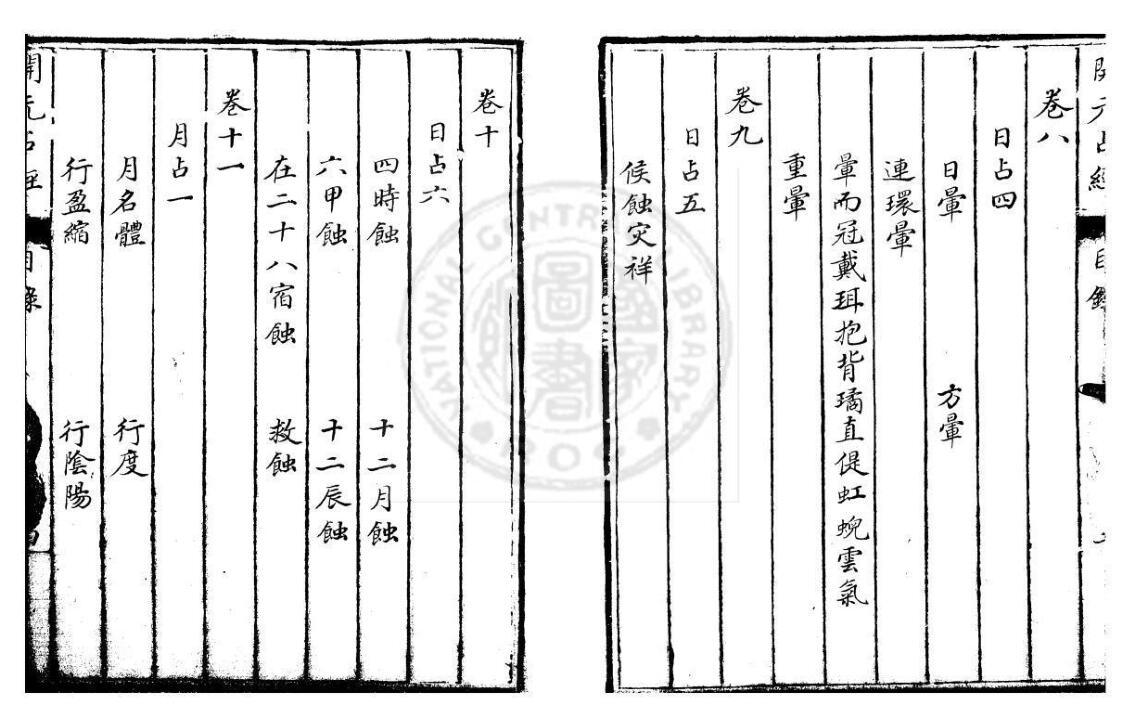 開元占經 目錄
卷八
日占四
日暈 方暈
連環暈
暈而冠戴珥抱背璚直偍虹蜺雲氣
重暈
卷九
日占五
候蝕灾祥
卷十
日占六
四時蝕 十二月蝕
六甲蝕 十二辰蝕
在二十八宿蝕 救蝕
卷十一
月占一
月名體 行度
行盈縮 行陰陽
開元占經 目錄 四
NATIONAL CENTRAL LIBRARY
國家圖書館
ROC